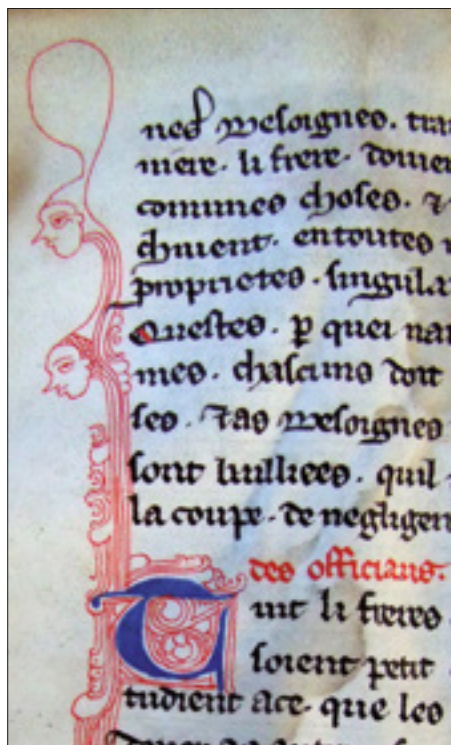 nes besoignes. tra
mere. li frere. doiuen
comunes choses. ⁊
entoutes
proprietes. singula
Questes. p quei
mes. chascuns doit
ses. ⁊ as besoignes
sont bailliees. quil
la coupe. de negligen
des officiaus.
Tuit li freres
soient petit
tudient ace. que les